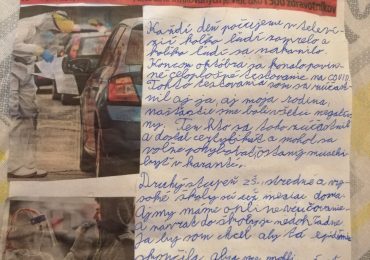 Každí deň počujeme v televí-
zií koľko ľudí zomrelo a
koľko ľudí sa nakazilo
Koncom októbra sa konalo povin-
né celoplošné testovanie na COVID
Tohto testovania som sa zúčast-
nil aj ja, aj moja rodina,
našťastie sme boli všetci negatív-
ny. Ten kto sa toho zúčastnil
a dostal certifikát a mohol sa
voľne pohybovať, ostaný museli
byť v karanténe.
Druhý stupeň ZŠ. stredné a vy-
soké školy sú už mesiac doma
Aj my máme onlíne vyučovanie
a návrat do školy je nedohľadne
Ja by som chcel aby tá epidémia
skončila, aby sme mohli